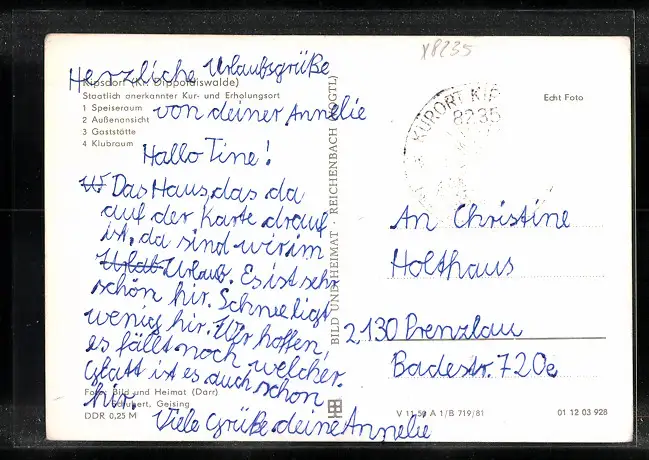 x8235
Herzliche Urlaubsgrüße
Kipsdorf (Kr. Dippoldiswalde)
Staatlich anerkannter Kur- und Erholungsort
1 Speiseraum
2 Außenansicht
3 Gaststätte
4 Klubraum
von deiner Annelie
Hallo Tine!
Das Haus, das da
auf der Karte drauf
ist, da sind wir im
Urlab Urlaub. Es ist sehr
schön hir. Schnee ligt
wenig hir. Wir hoffen,
es fällt noch welcher.
Glatt ist es auch schon
hir.
Viele Grüße deine Annelie
Foto: Bild und Heimat (Darr)
Schubert, Geising
DDR 0,25 M
BILD UND HEIMAT · REICHENBACH (VOGTL)
KURORT KIP
8235
Echt Foto
An Christine
Holthaus
2130 Prenzlau
Badestr. 720e
V 11 50 A 1/B 719/81
01 12 03 928